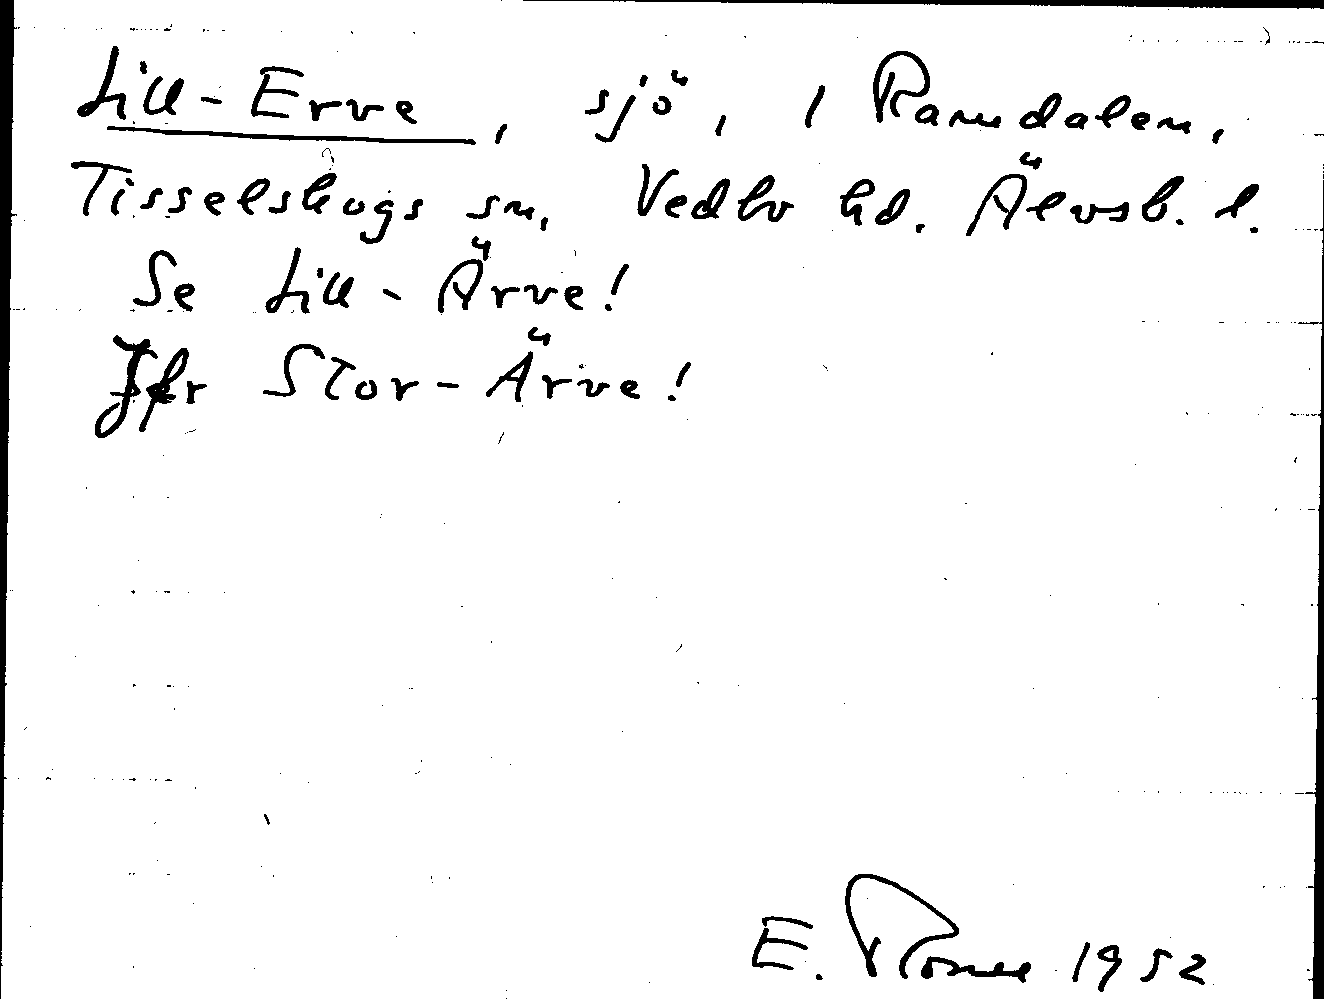 Lill-Erve, sjö, i Ramdalen,
Tisselskogs sn, Vedbo hd. Älvsb. l.
Se Lill-Ärve!
Jfr Stor-Ärve!
E. 1952